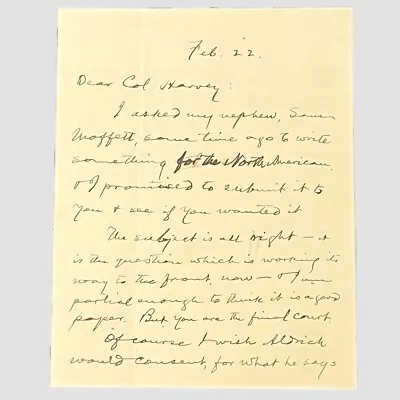 Feb. 22.
Dear Col Harvey:
I asked my nephew, Sam
Moffett, some time ago to write
something for the North American,
& I promised to submit it to
you & see if you wanted it
The subject is all right — it
is the question which is working its
way to the front, now — & I am
partial enough to think it is a good
paper. But you are the final court.
Of course I wish Aldrich
would consent, for what he says